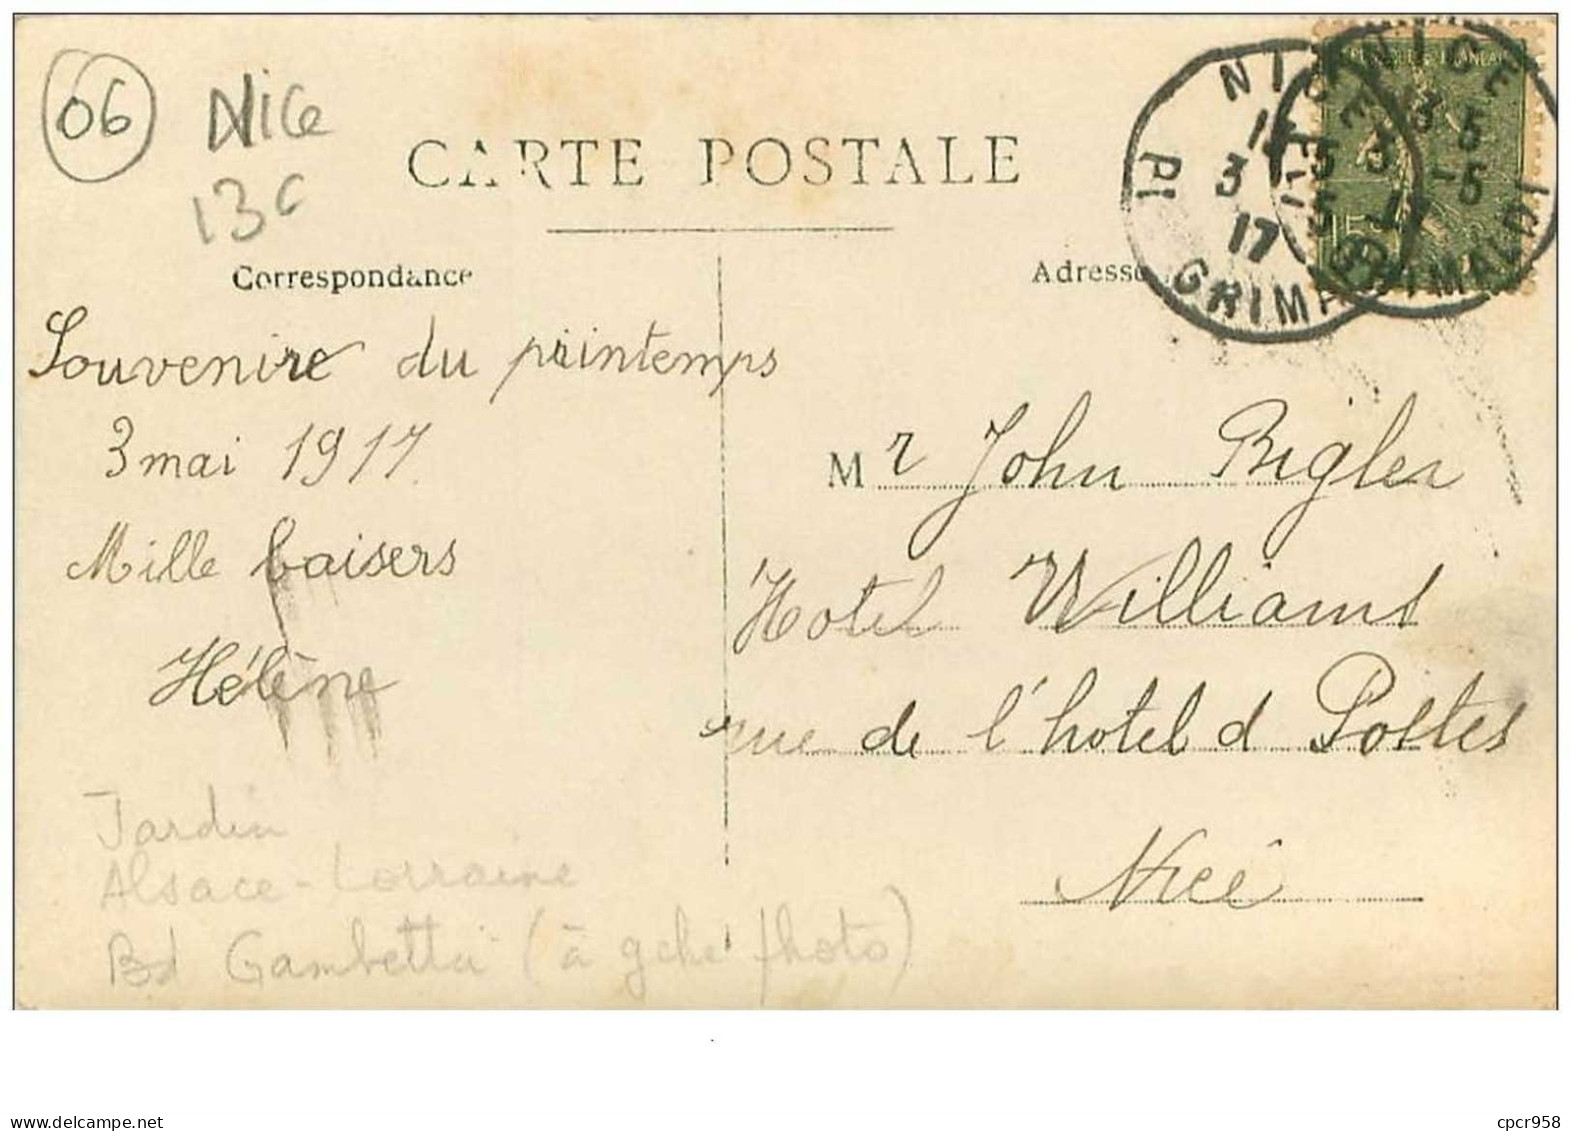 06 Nice
13c
CARTE POSTALE
Correspondance
Adresse
NICE
3 5
17
PL GRIMALDI
Souvenire du printemps
3 mai 1917
Mille baisers
Hélène
Mr John Bigler
Hotel Williams
rue de l'hotel d Postes
Nice
Jardin
Alsace-Lorraine
Bd Gambetta (à gche photo)
www.delcampe.net
cpcr958